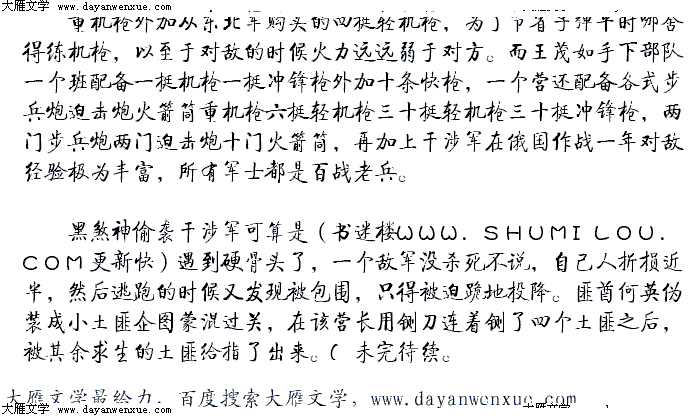 大雁文学 www.dayanwenxue.com 大雁文学 www.dayanwenxue.com
重机枪外加从东北军购买的四挺轻机枪，为了节省子弹平时哪舍
得练机枪，以至于对敌的时候火力远远弱于对方。而王茂如手下部队
一个班配备一挺机枪一挺冲锋枪外加十条快枪，一个营还配备各式步
兵炮迫击炮火箭筒重机枪六挺轻机枪三十挺轻机枪三十挺冲锋枪，两
门步兵炮两门迫击炮十门火箭筒，再加上干涉军在俄国作战一年对敌
经验极为丰富，所有军士都是百战老兵。
黑煞神偷袭干涉军可算是（书迷楼WWW．SHUMILOU．
COM更新快）遇到硬骨头了，一个敌军没杀死不说，自己人折损近
半，然后逃跑的时候又发现被包围，只得被迫跪地投降。匪首何英伪
装成小土匪企图蒙混过关，在该营长用铡刀连着铡了四个土匪之后，
被其余求生的土匪给指了出来。（ 未完待续。
大雁文学最给力，百度搜索大雁文学，www.dayanwenxue.com
大雁文学 www.dayanwenxue.com 大雁文学 www.dayanwenxue.com